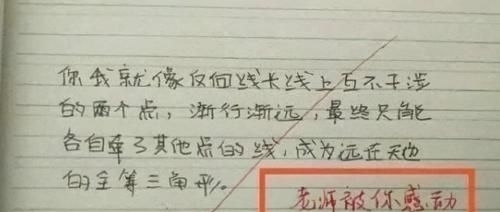 你我就像反向延长线上互不干涉
的两个点，渐行渐远，最终只能
各自牵了其他点的线，成为远在天边
的全等三角形。
老师被你感动